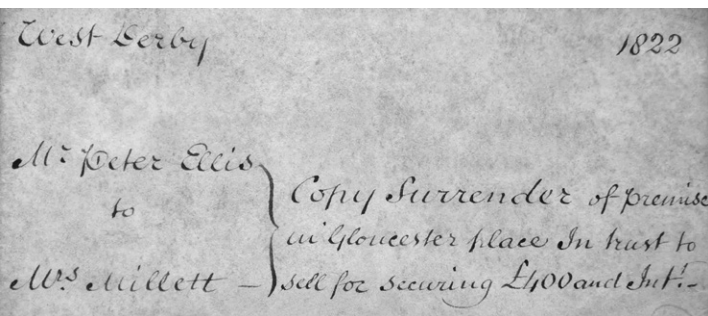 West Derby 1822
Mr Peter Ellis
to
Mrs Millett —
Copy Surrender of premise
in Gloucester place In trust to
sell for securing £400 and Intt. –